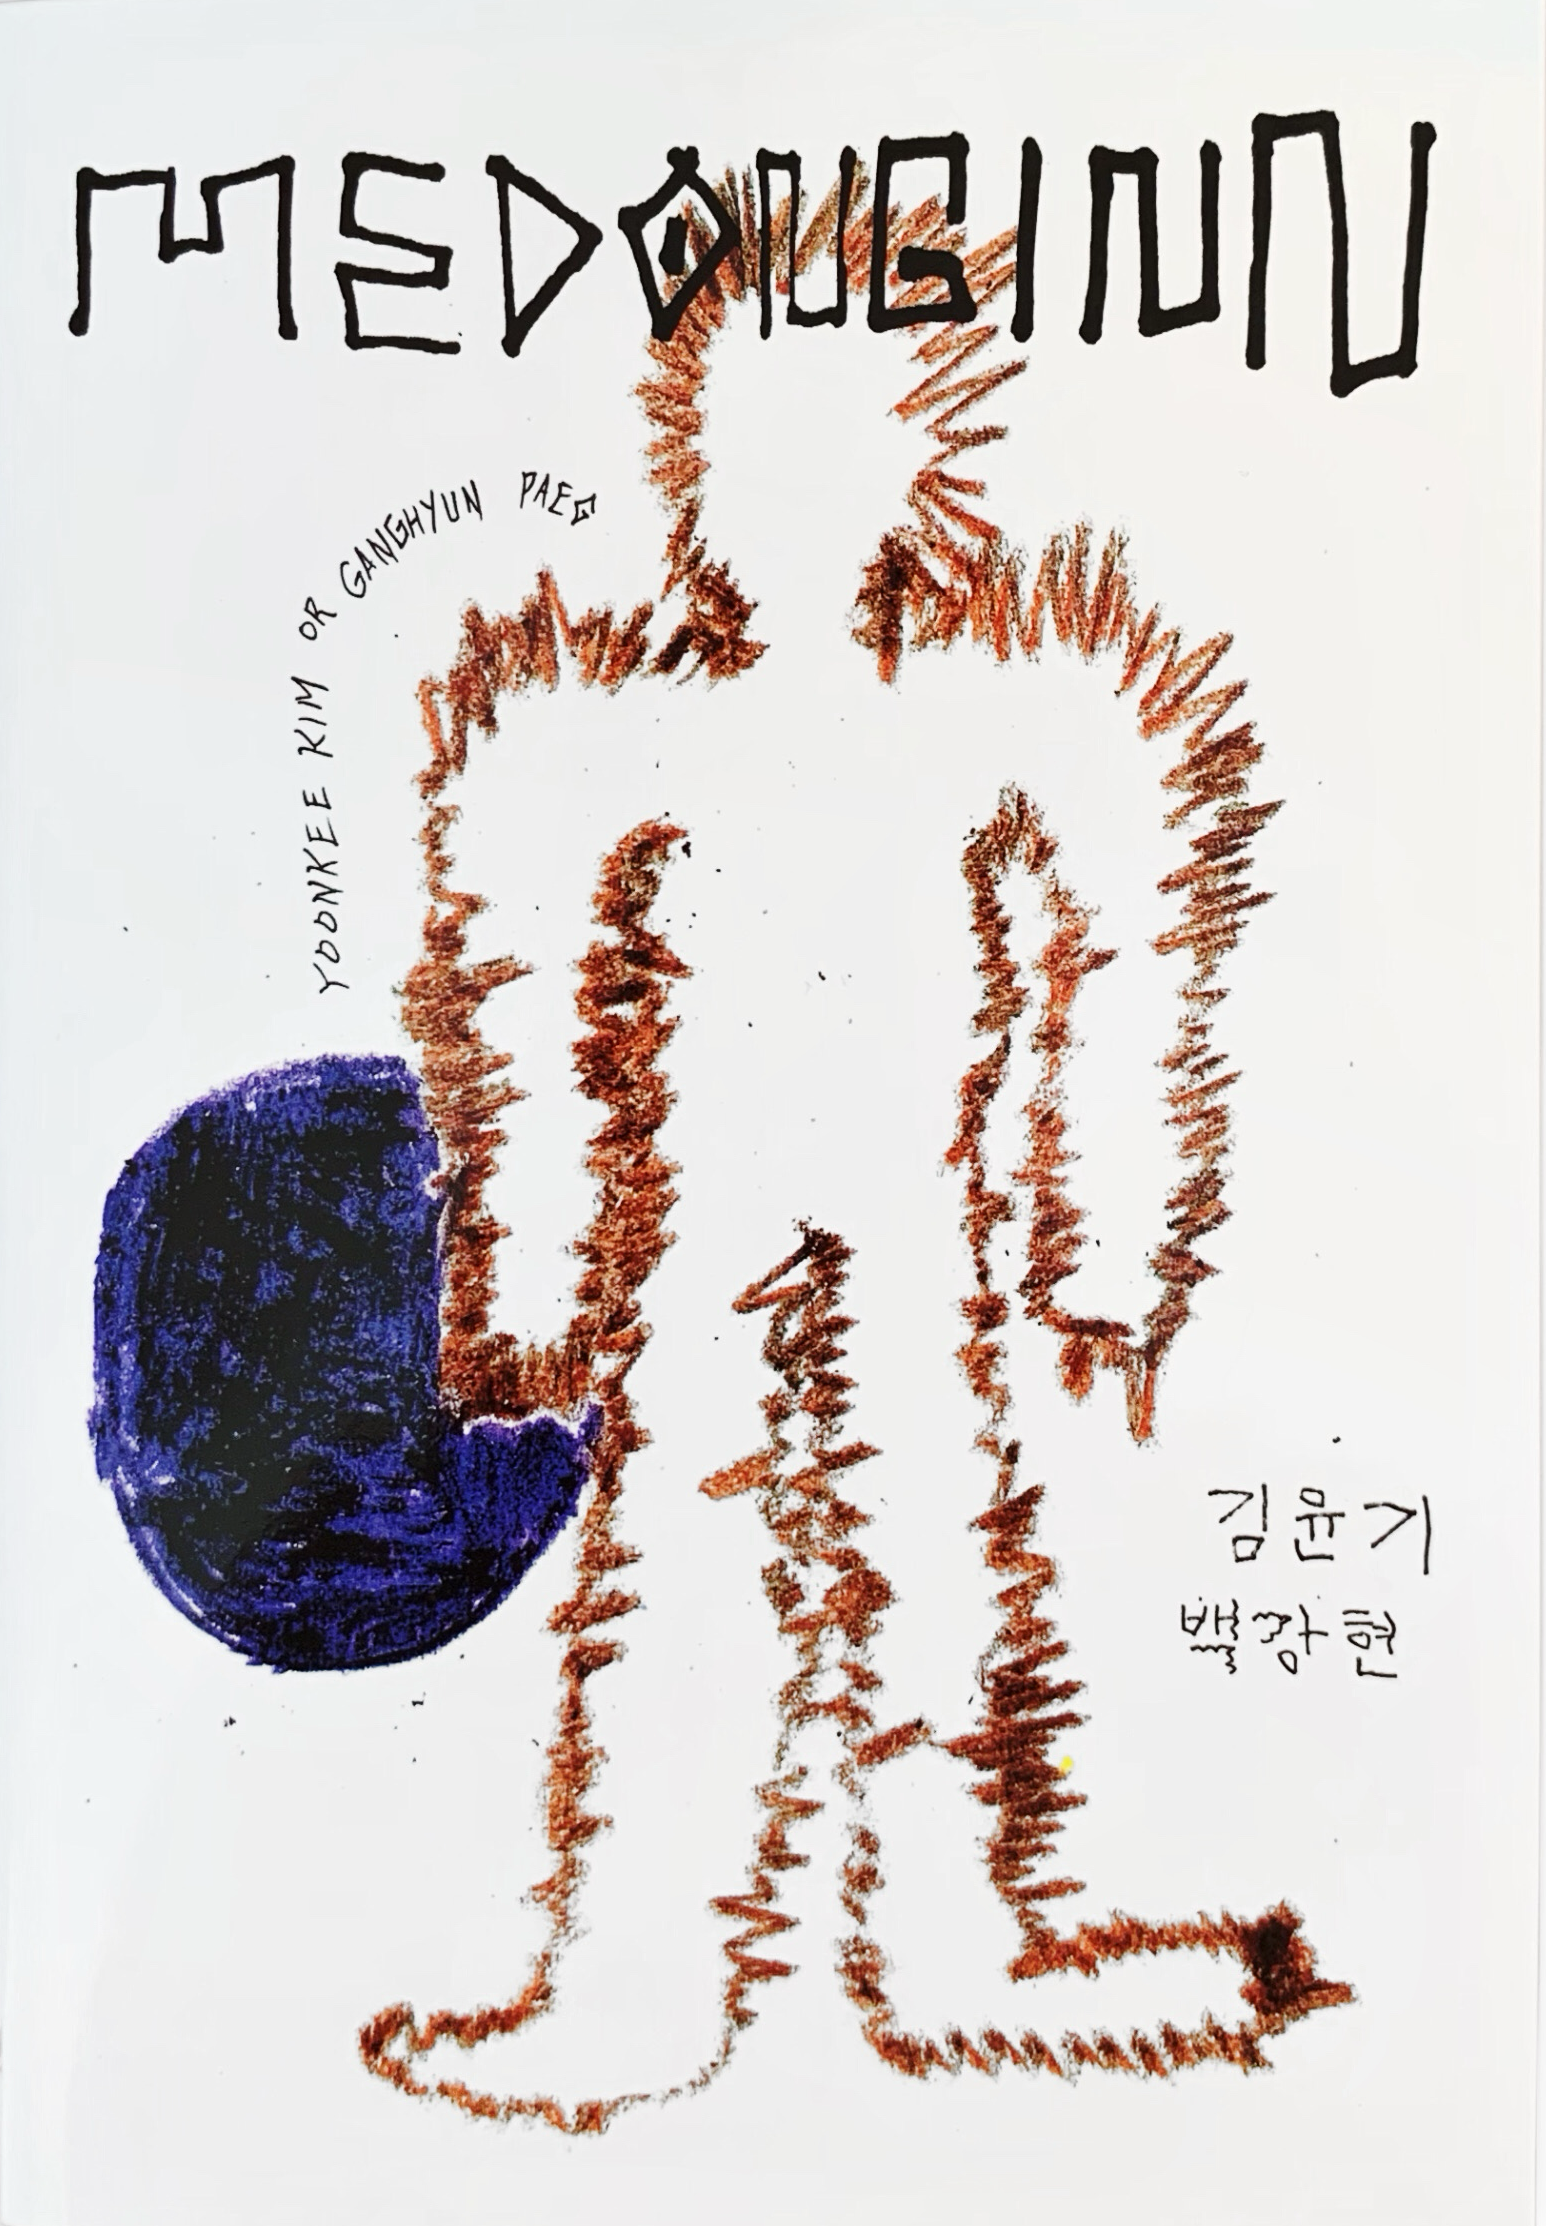 MEDONGINN
YOONKEE KIM OR GANGHYUN PAEG
김윤기
백강현